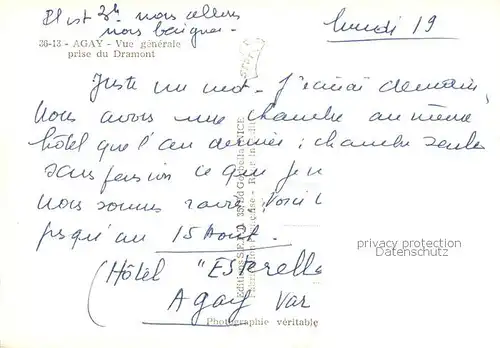 Il est 3h nous allons
nous baigner.
lundi 19
36-13 - AGAY - Vue générale
prise du Dramont
Juste un mot - J'écrirai demain,
Nous avons une chambre au même
hôtel que l'an dernier ; chambre seule
sans pension ce que je
Nous sommes Voici
jusqu'au 15 Août.
(Hôtel "Esterella
Agay Var
Photographie véritable
Editions NICE
privacy protection
Datenschutz